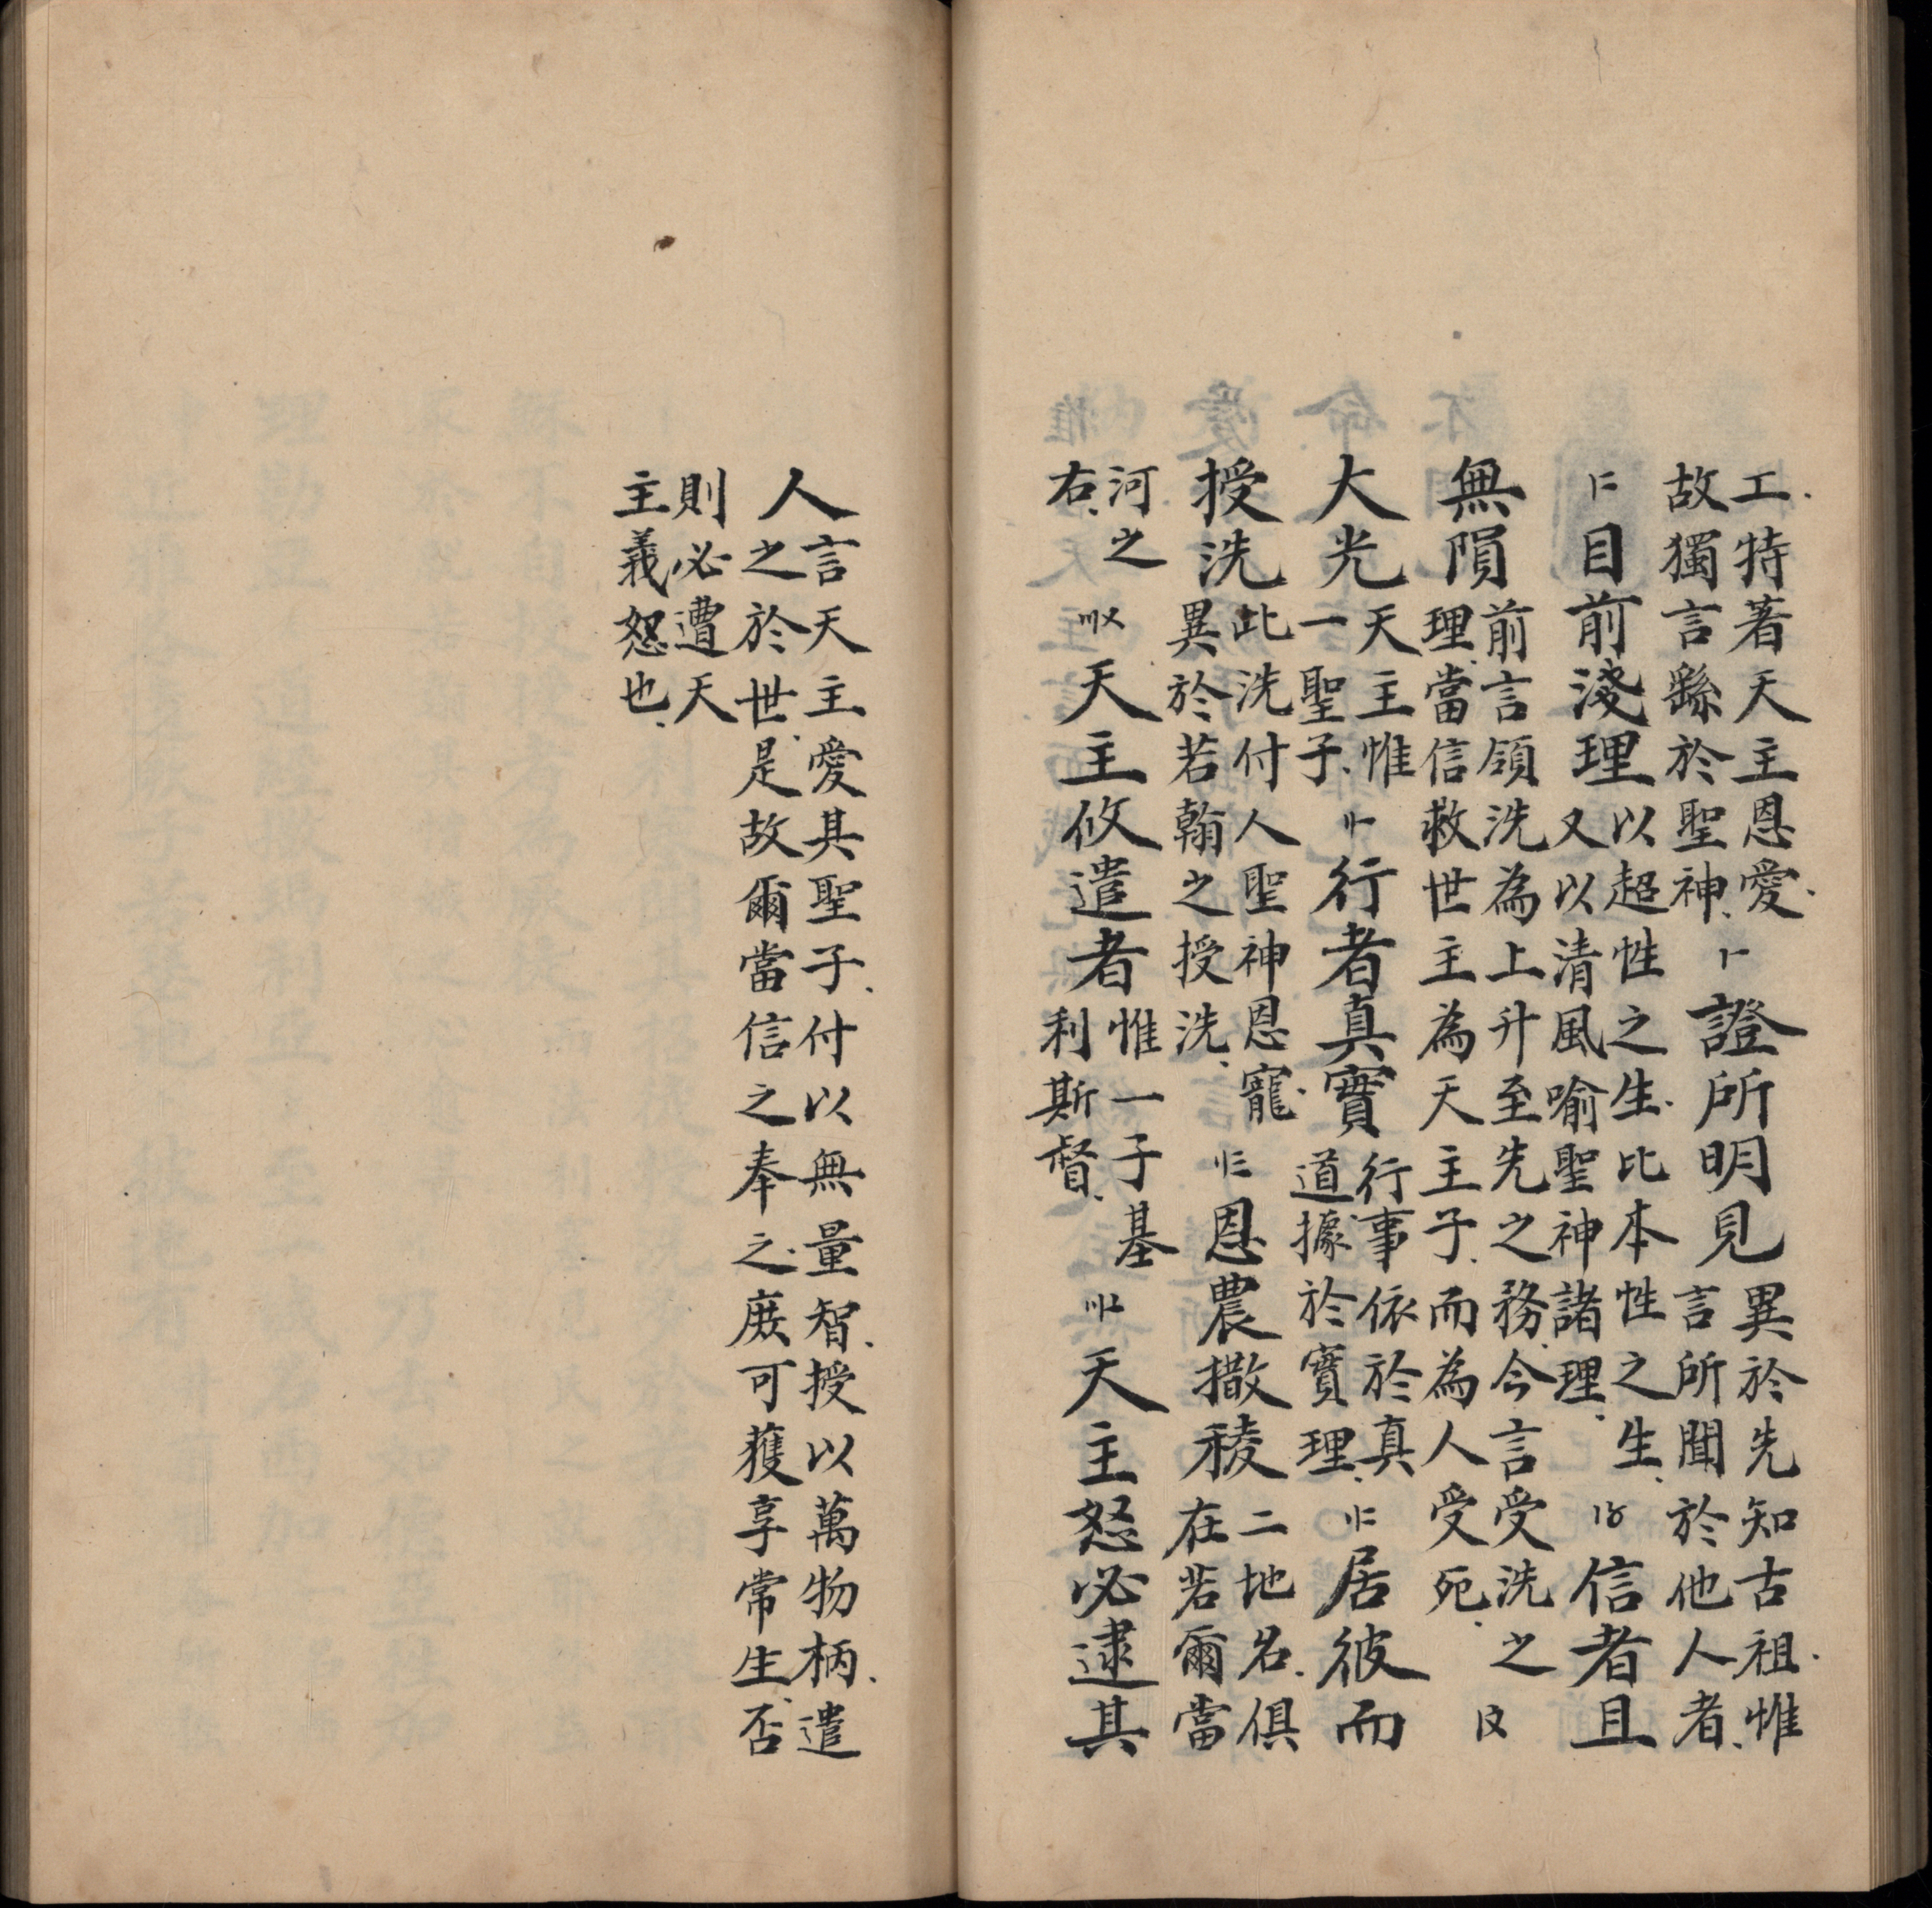 工、特著天主恩愛、故獨言繇於聖神、〡一證所明見異於先知古祖、惟言所聞於他人者、
〡二目前淺理以超性之生、比本性之生、又以清風喻聖神諸理、〡〥信者且
無隕前言領洗為上升至先之務、今言受洗之理、當信救世主為天主子、而為人受死、〡〩
大光天主惟一聖子、〢一行者真實行事依於真道、據於實理、〢二居彼而
授洗此洗付人聖神恩寵、異於若翰之授洗、〢三恩農撒稜二地名、俱在若爾當
河之右、〣〤天主攸遣者惟一子基利斯督、〣〦天主怒必逮其
人言天主愛其聖子、付以無量智、授以萬物柄、遣之於世、是故爾當信之奉之、庶可獲享常生、否
則必遭天主義怒也、